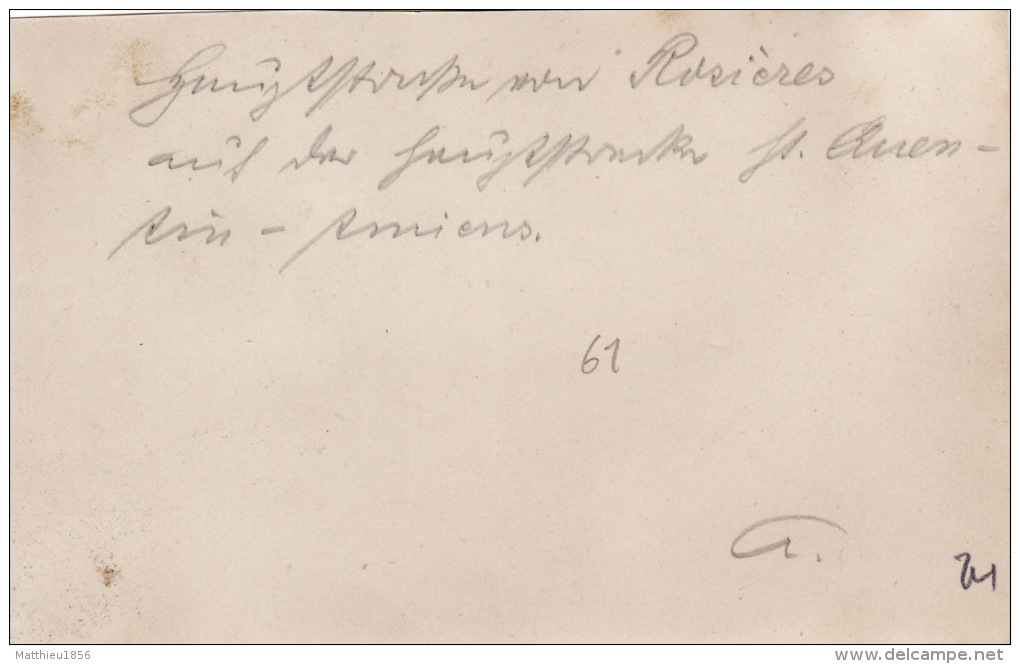 Hauptstraße von Rosières
auf der Hauptstrecke St. Quen-
tin - Amiens.
61
a.
Matthieu1856
delcampe.net